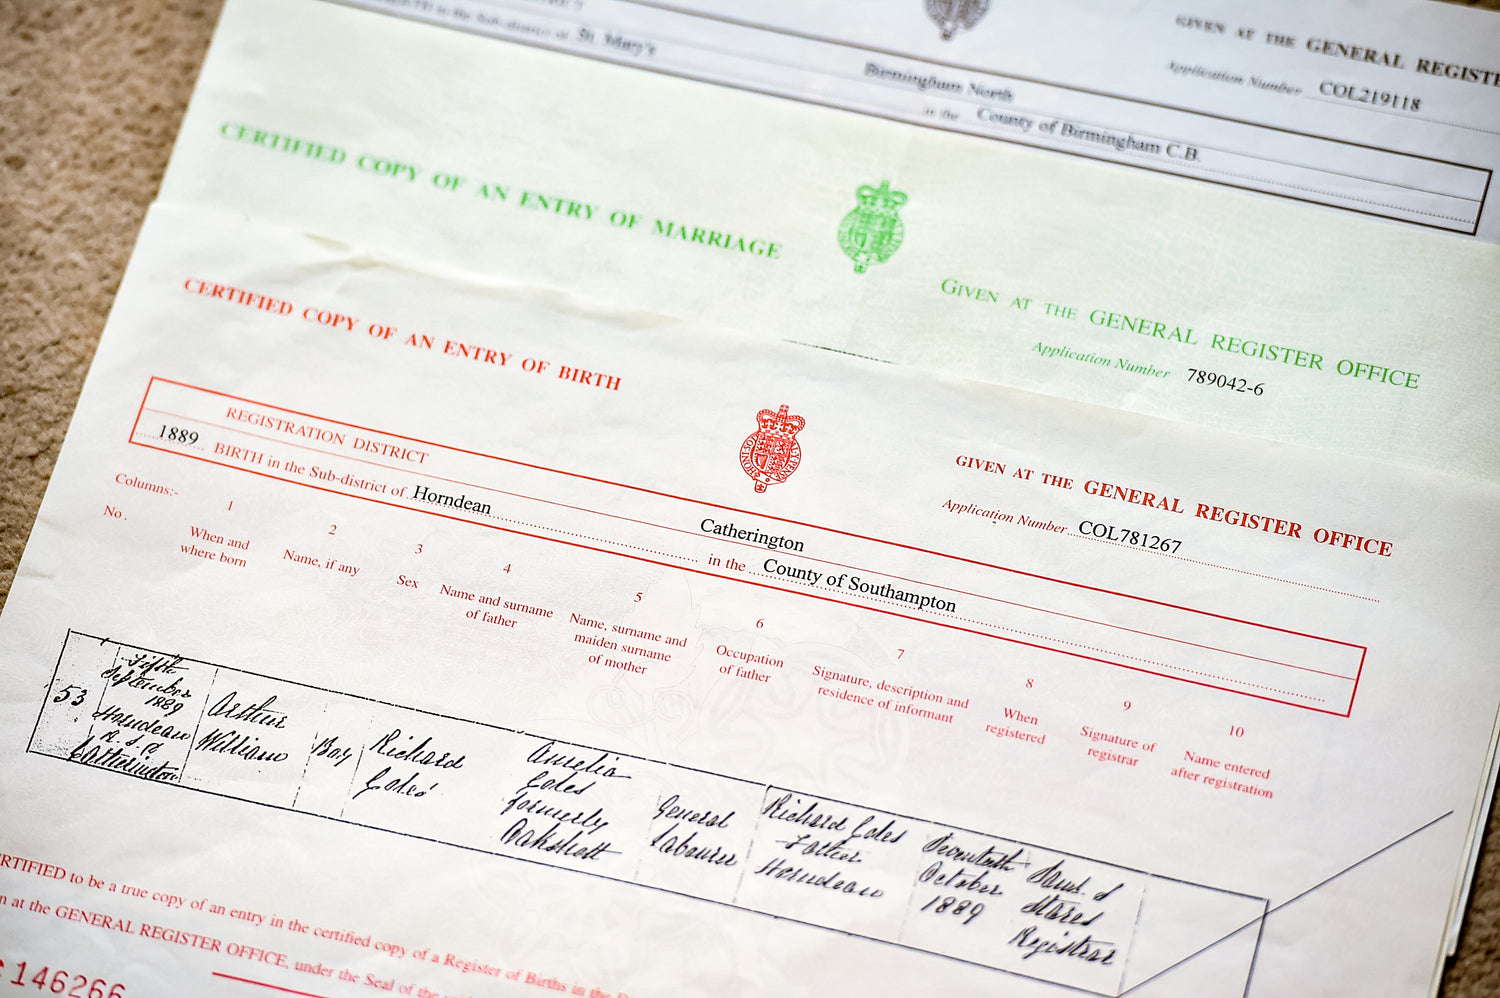 St. Mary's
Birmingham North
in the County of Birmingham C.B.
GIVEN AT THE GENERAL REGIST
Application Number COL219118
CERTIFIED COPY OF AN ENTRY OF MARRIAGE
GIVEN AT THE GENERAL REGISTER OFFICE
Application Number 789042-6
CERTIFIED COPY OF AN ENTRY OF BIRTH
GIVEN AT THE GENERAL REGISTER OFFICE
Application Number COL781267
REGISTRATION DISTRICT Catherington
1889 BIRTH in the Sub-district of Horndean in the County of Southampton
Columns:- 1 2 3 4 5 6 7 8 9 10
No.
When and
where born
Name, if any
Sex
Name and surname
of father
Name, surname and
maiden surname
of mother
Occupation
of father
Signature, description and
residence of informant
When
registered
Signature of
registrar
Name entered
after registration
53
Fifth
September
1889
Horndean
R.S.D
Catherington
Arthur
William
Boy
Richard
Coles
Amelia
Coles
formerly
Oakshott
General
Labourer
Richard Coles
Father
Horndean
October
1889
Stares
Registrar
CERTIFIED to be a true copy of an entry in the certified copy of a Register of Births in the
at the GENERAL REGISTER OFFICE, under the Seal of the
146266